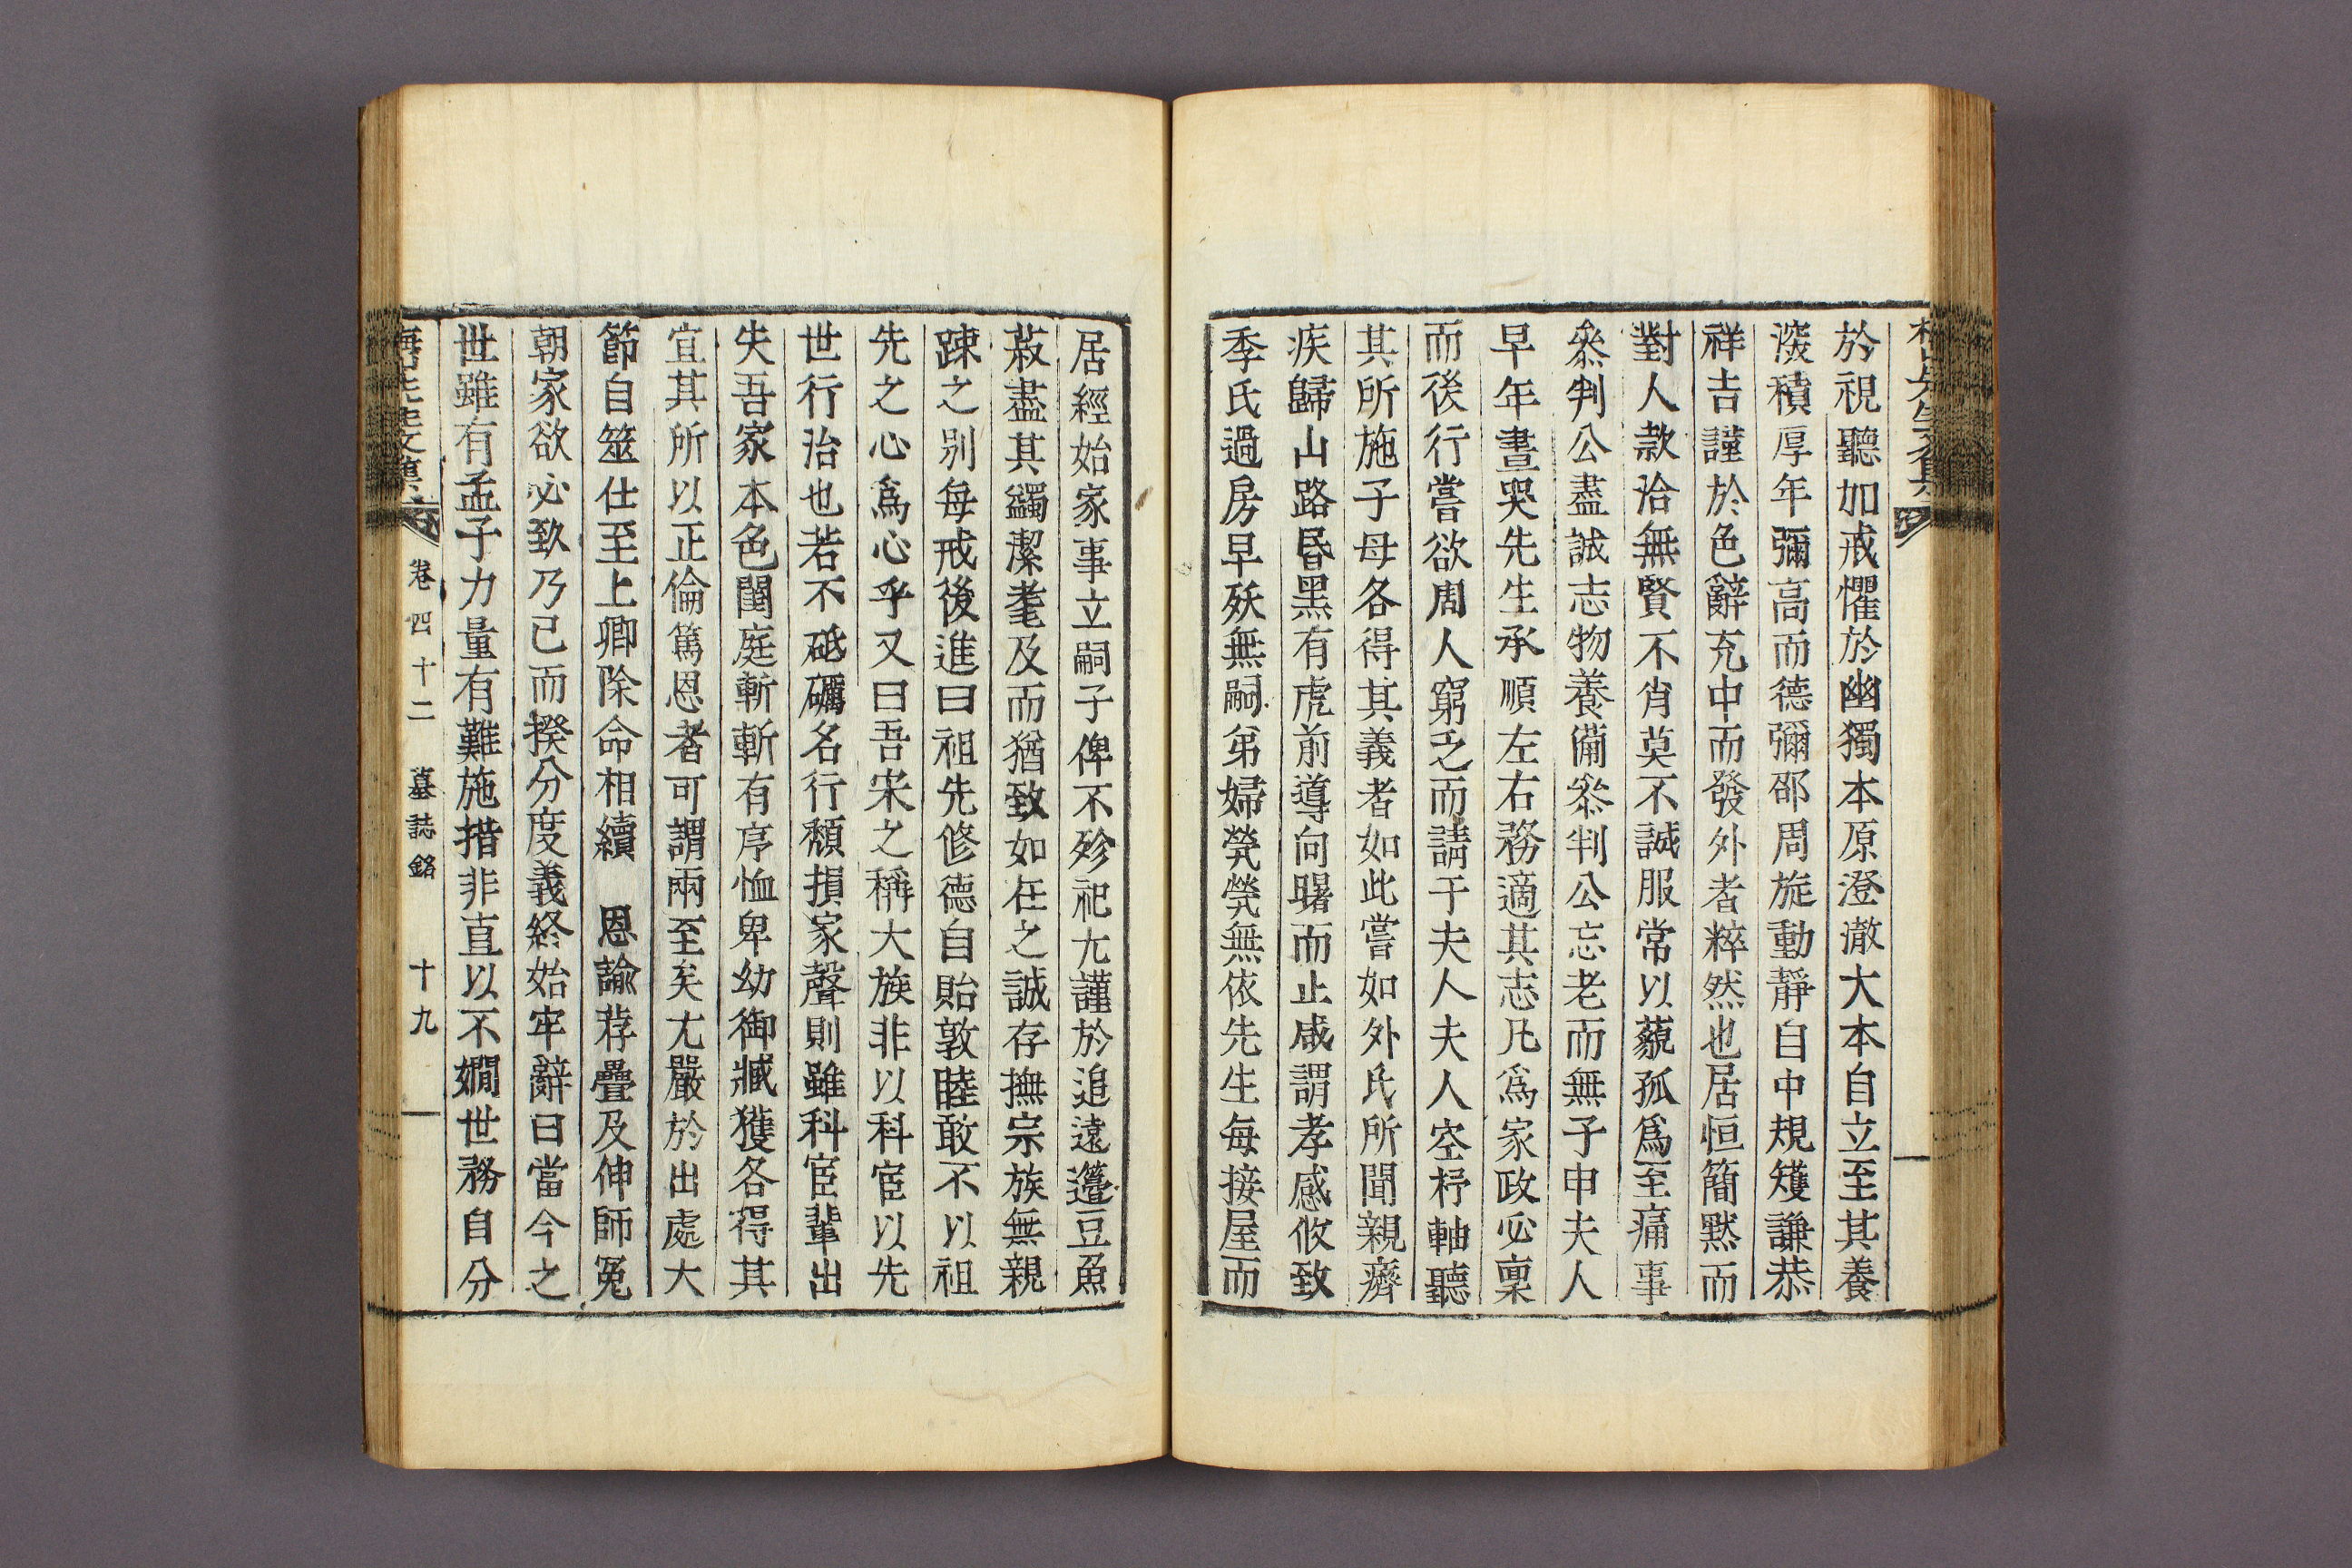 於視聽加戒懼於幽獨本原澄澈大本自立至其養
深積厚年彌高而德彌邵周旋動靜自中規矱謙恭
祥吉謹於色辭充中而發外者粹然也居恒簡黙而
對人款洽無賢不肖莫不誠服常以藐孤爲至痛事
叅判公盡誠志物養備叅判公忘老而無子申夫人
早年晝哭先生承順左右務適其志凡爲家政必稟
而後行嘗欲周人窮乏而請于夫人夫人空杼軸聽
其所施子母各得其義者如此嘗如外氏所聞親癠
疾歸山路昏黑有虎前導向曙而止咸謂孝感攸致
季氏過房早殀無嗣弟婦煢煢無依先生每接屋而
居經始家事立嗣子俾不殄祀尤謹於追遠籩豆魚
菽盡其蠲潔耄及而猶致如在之誠存撫宗族無親
踈之别每戒後進曰祖先修德自貽敦睦敢不以祖
先之心爲心乎又曰吾宋之稱大族非以科宦以先
世行治也若不砥礪名行頹損家聲則雖科宦輩出
失吾家本色閨庭斬斬有序恤卑幼御臧獲各得其
宜其所以正倫篤恩者可謂兩至矣尤嚴於出處大
節自筮仕至上卿除命相續　恩諭荐疊及伸師冤
朝家欲必致乃已而揆分度義終始牢辭曰當今之
世雖有孟子力量有難施措非直以不嫺世務自分
卷四十二　墓誌銘　十九